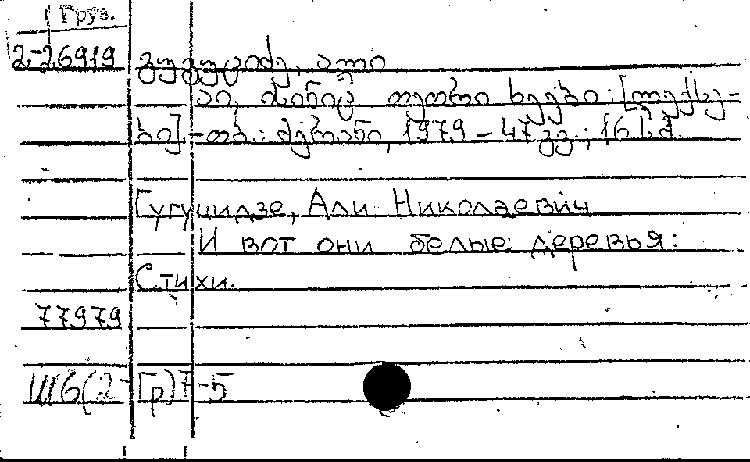 Груз.
2-26919 გუგუციძე, ალი
აი, ისინიც თეთრი ხეები: [ლექსე-
ბი]. - თბ.: მერანი, 1979 - 47 გვ.; 16 სმ.
Гугуцидзе, Али Николаевич
И вот они белые деревья:
Стихи.
77979
Ш6(2=Гр)7-5